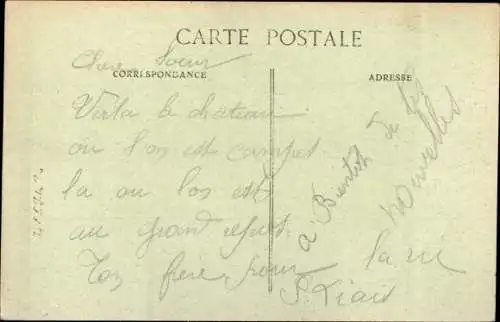 CARTE POSTALE
CORRESPONDANCE
ADRESSE
Chere Soeur
Voila le chateau
ou l'on est campés
la ou l'on est
au grand repos
Ton frere pour
la vie
a Bientot de tes
nouvelles